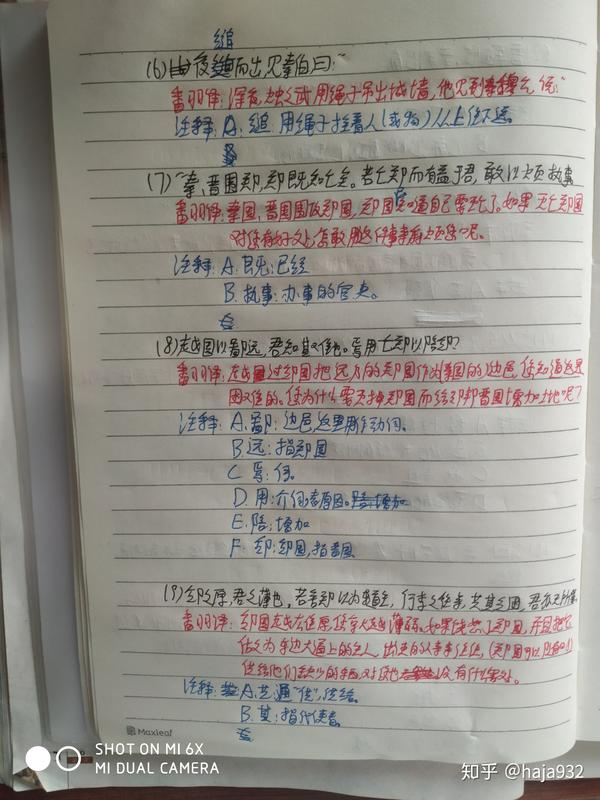 缒
(6)夜缒而出,见秦伯曰:"
翻译:深夜,烛之武用绳子吊出城墙,他见到秦穆公,说:"
注释:A.缒:用绳子拴着人(或物)从上往下送
(7)"秦、晋围郑,郑既知亡矣。若亡郑而有益于君,敢以烦执事
翻译:秦国、晋国围攻郑国,郑国知道自己要亡了。如果灭亡郑国
对您有好处,怎敢用这件事情麻烦您呢。
注释:A.既:已经
B.执事:办事的官吏。
(8)越国以鄙远,君知其难也。焉用亡郑以陪邻?
翻译:越过国把远方的郑国作为秦国的边邑,您知道这是
困难的。您为什么要灭掉郑国而给邻邦晋国增加土地呢?
注释:A.鄙:边邑,这里用作动词。
B.远:指郑国
C.焉:何。
D.用:介词,表原因。
E.陪:增加
F.邻:邻国,指晋国
(9)邻之厚,君之薄也。若舍郑以为东道主,行李之往来,共其乏困,君亦无所害。
翻译:邻国越雄厚,您就越薄弱。如果您放了郑国,并且把它
做为东边大道上的主人,出使的人来来往往,(郑国可以随时)
供给他们缺少的东西,对您也没有什么害处。
注释:A.共通"供",供给
B.其:指代使者
Maxleaf
SHOT ON MI 6X
MI DUAL CAMERA
知乎 @haja932